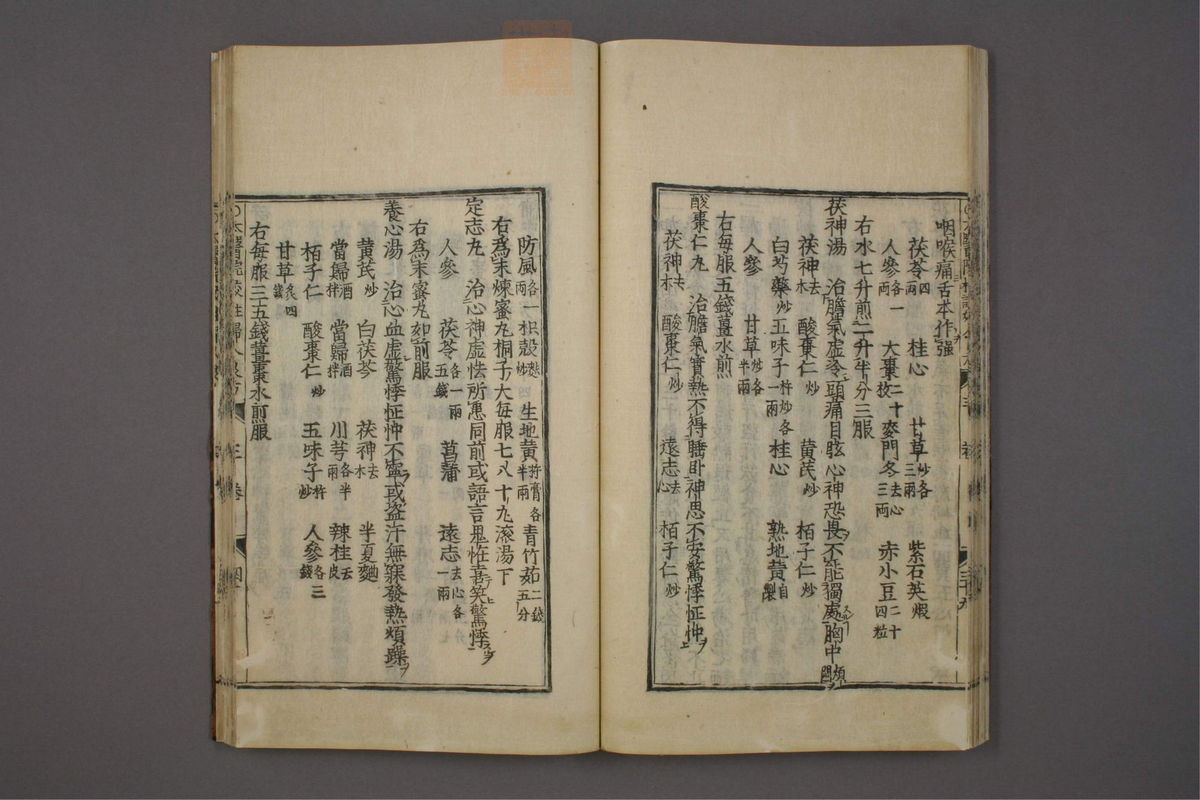 咽喉痛舌本作强
茯苓四兩 桂心 甘草炒各三兩 紫石英煆
人參各一兩 大棗二十枚 麥門冬去心三兩 赤小豆二十四粒
右水七升煎二升半分三服
茯神湯 治膽氣虛冷頭痛目眩心神恐畏不能獨處胸中煩悶
茯神去木 酸棗仁炒 黃芪炒 栢子仁炒
白芍藥炒 五味子杵炒各一兩 桂心 熟地黃自製
人參 甘草炒各半兩
右每服五錢薑水煎
酸棗仁丸 治膽氣實熱不得睡臥神思不安驚悸怔忡
茯神去木 酸棗仁炒 遠志去心 栢子仁炒
防風各一兩 枳殼麩炒 生地黃杵膏各半兩 青竹茹二錢五分
右爲末煉蜜丸桐子大每服七八十丸滾湯下
定志丸 治心神虛怯所患同前或語言鬼怪喜笑驚悸
人參 茯苓各一兩五錢 菖蒲 遠志去心各一兩
右爲末蜜丸如前服
養心湯 治心血虛驚悸怔忡不寧或盜汗無寐發熱煩躁
黃芪炒 白茯苓 茯神去木 半夏麴
當歸酒拌 當歸酒拌 川芎各半兩 辣桂去皮
栢子仁 酸棗仁炒 五味子杵炒 人參各三錢
甘草炙四錢
右每服三五錢薑棗水煎服